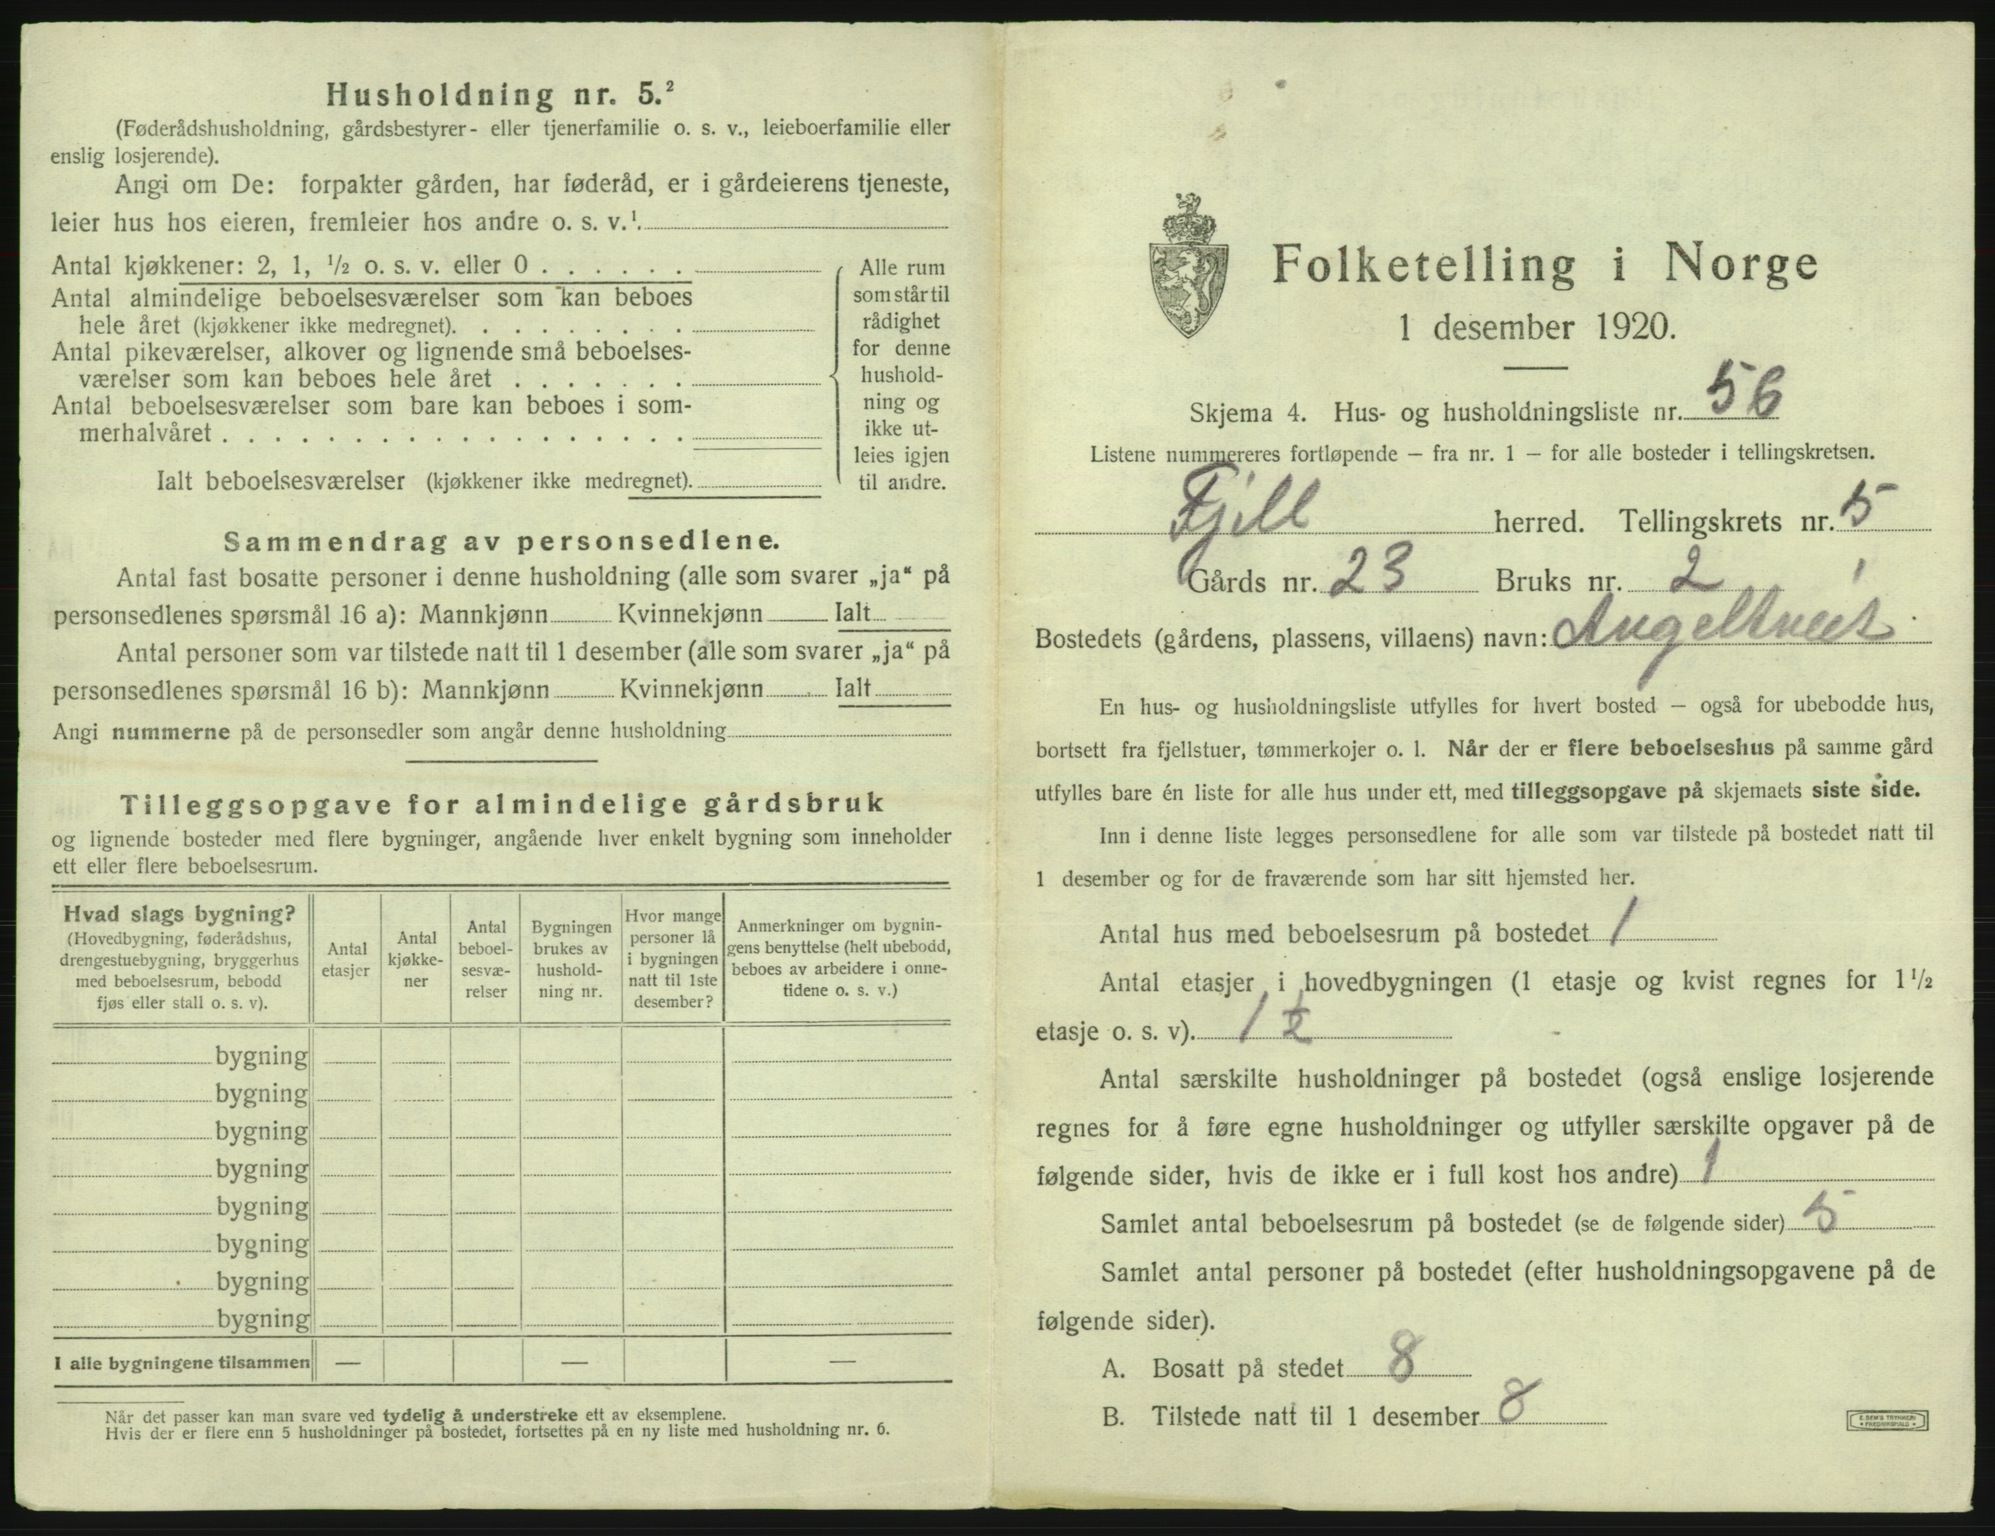 Husholdning nr. 5.²
(Føderådshusholdning, gårdsbestyrer- eller tjenerfamilie o. s. v., leieboerfamilie eller
enslig losjerende).
Angi om De: forpakter gården, har føderåd, er i gårdeierens tjeneste,
leier hus hos eieren, fremleier hos andre o. s. v.¹
Antal kjøkkener: 2, 1, ½ o. s. v. eller 0 . . . . . .
Antal almindelige beboelsesværelser som kan beboes
hele året (kjøkkener ikke medregnet). . . . . . . . .
Antal pikeværelser, alkover og lignende små beboelses-
værelser som kan beboes hele året . . . . . . .
Antal beboelsesværelser som bare kan beboes i som-
merhalvåret . . . . . . . . . . . . . . . . . .
Ialt beboelsesværelser (kjøkkener ikke medregnet).
Alle rum
som står til
rådighet
for denne
hushold-
ning og
ikke ut-
leies igjen
til andre.
Sammendrag av personsedlene.
Antal fast bosatte personer i denne husholdning (alle som svarer „ja“ på
personsedlenes spørsmål 16 a): Mannkjønn Kvinnekjønn Ialt
Antal personer som var tilstede natt til 1 desember (alle som svarer „ja“ på
personsedlenes spørsmål 16 b): Mannkjønn Kvinnekjønn Ialt
Angi nummerne på de personsedler som angår denne husholdning
Tilleggsopgave for almindelige gårdsbruk
og lignende bosteder med flere bygninger, angående hver enkelt bygning som inneholder
ett eller flere beboelsesrum.
Hvad slags bygning?
(Hovedbygning, føderådshus,
drengestuebygning, bryggerhus
med beboelsesrum, bebodd
fjøs eller stall o. s. v).
Antal
etasjer
Antal
kjøkke-
ner
Antal
beboel-
sesvæ-
relser
Bygningen
brukes av
hushold-
ning nr.
Hvor mange
personer lå
i bygningen
natt til 1ste
desember?
Anmerkninger om bygnin-
gens benyttelse (helt ubebodd,
beboes av arbeidere i onne-
tidene o. s. v.)
bygning
bygning
bygning
bygning
bygning
bygning
bygning
bygning
I alle bygningene tilsammen — — —
Når det passer kan man svare ved tydelig å understreke ett av eksemplene.
Hvis der er flere enn 5 husholdninger på bostedet, fortsettes på en ny liste med husholdning nr. 6.
Folketelling i Norge
1 desember 1920.
Skjema 4. Hus- og husholdningsliste nr. 56
Listene nummereres fortløpende – fra nr. 1 – for alle bosteder i tellingskretsen.
Fjell herred. Tellingskrets nr. 5
Gårds nr. 23 Bruks nr. 2
Bostedets (gårdens, plassens, villaens) navn: Angeltveit
En hus- og husholdningsliste utfylles for hvert bosted – også for ubebodde hus,
bortsett fra fjellstuer, tømmerkojer o. l. Når der er flere beboelseshus på samme gård
utfylles bare én liste for alle hus under ett, med tilleggsopgave på skjemaets siste side.
Inn i denne liste legges personsedlene for alle som var tilstede på bostedet natt til
1 desember og for de fraværende som har sitt hjemsted her.
Antal hus med beboelsesrum på bostedet 1
Antal etasjer i hovedbygningen (1 etasje og kvist regnes for 1½
etasje o. s. v). 1 ½
Antal særskilte husholdninger på bostedet (også enslige losjerende
regnes for å føre egne husholdninger og utfyller særskilte opgaver på de
følgende sider, hvis de ikke er i full kost hos andre) 1
Samlet antal beboelsesrum på bostedet (se de følgende sider) 5
Samlet antal personer på bostedet (efter husholdningsopgavene på de
følgende sider).
A. Bosatt på stedet 8
B. Tilstede natt til 1 desember 8